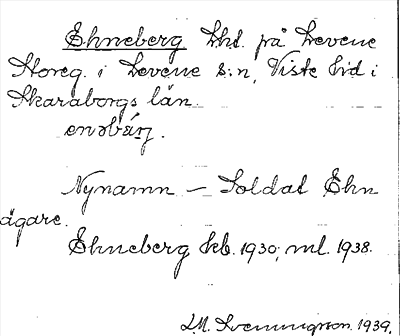 Ehneberg lht. på Levene
Storeg. i Levene s:n, Viste hd i
Skaraborgs län.
Nynamn – Soldat Ehn
ägare.
Ehneberg kb. 1930; ml. 1938.
L.M. Svenungsson. 1939.